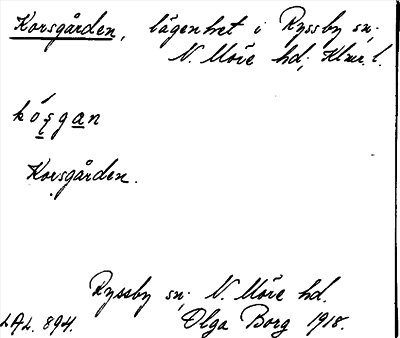 Korsgården, lägenhet i Ryssby sn;
N. Möre hd; Klmr. l.
kó̱s̱ga̱n
Korsgården.
Ryssby sn; N. Möre hd.
LAL. 894. Olga Borg 1918.